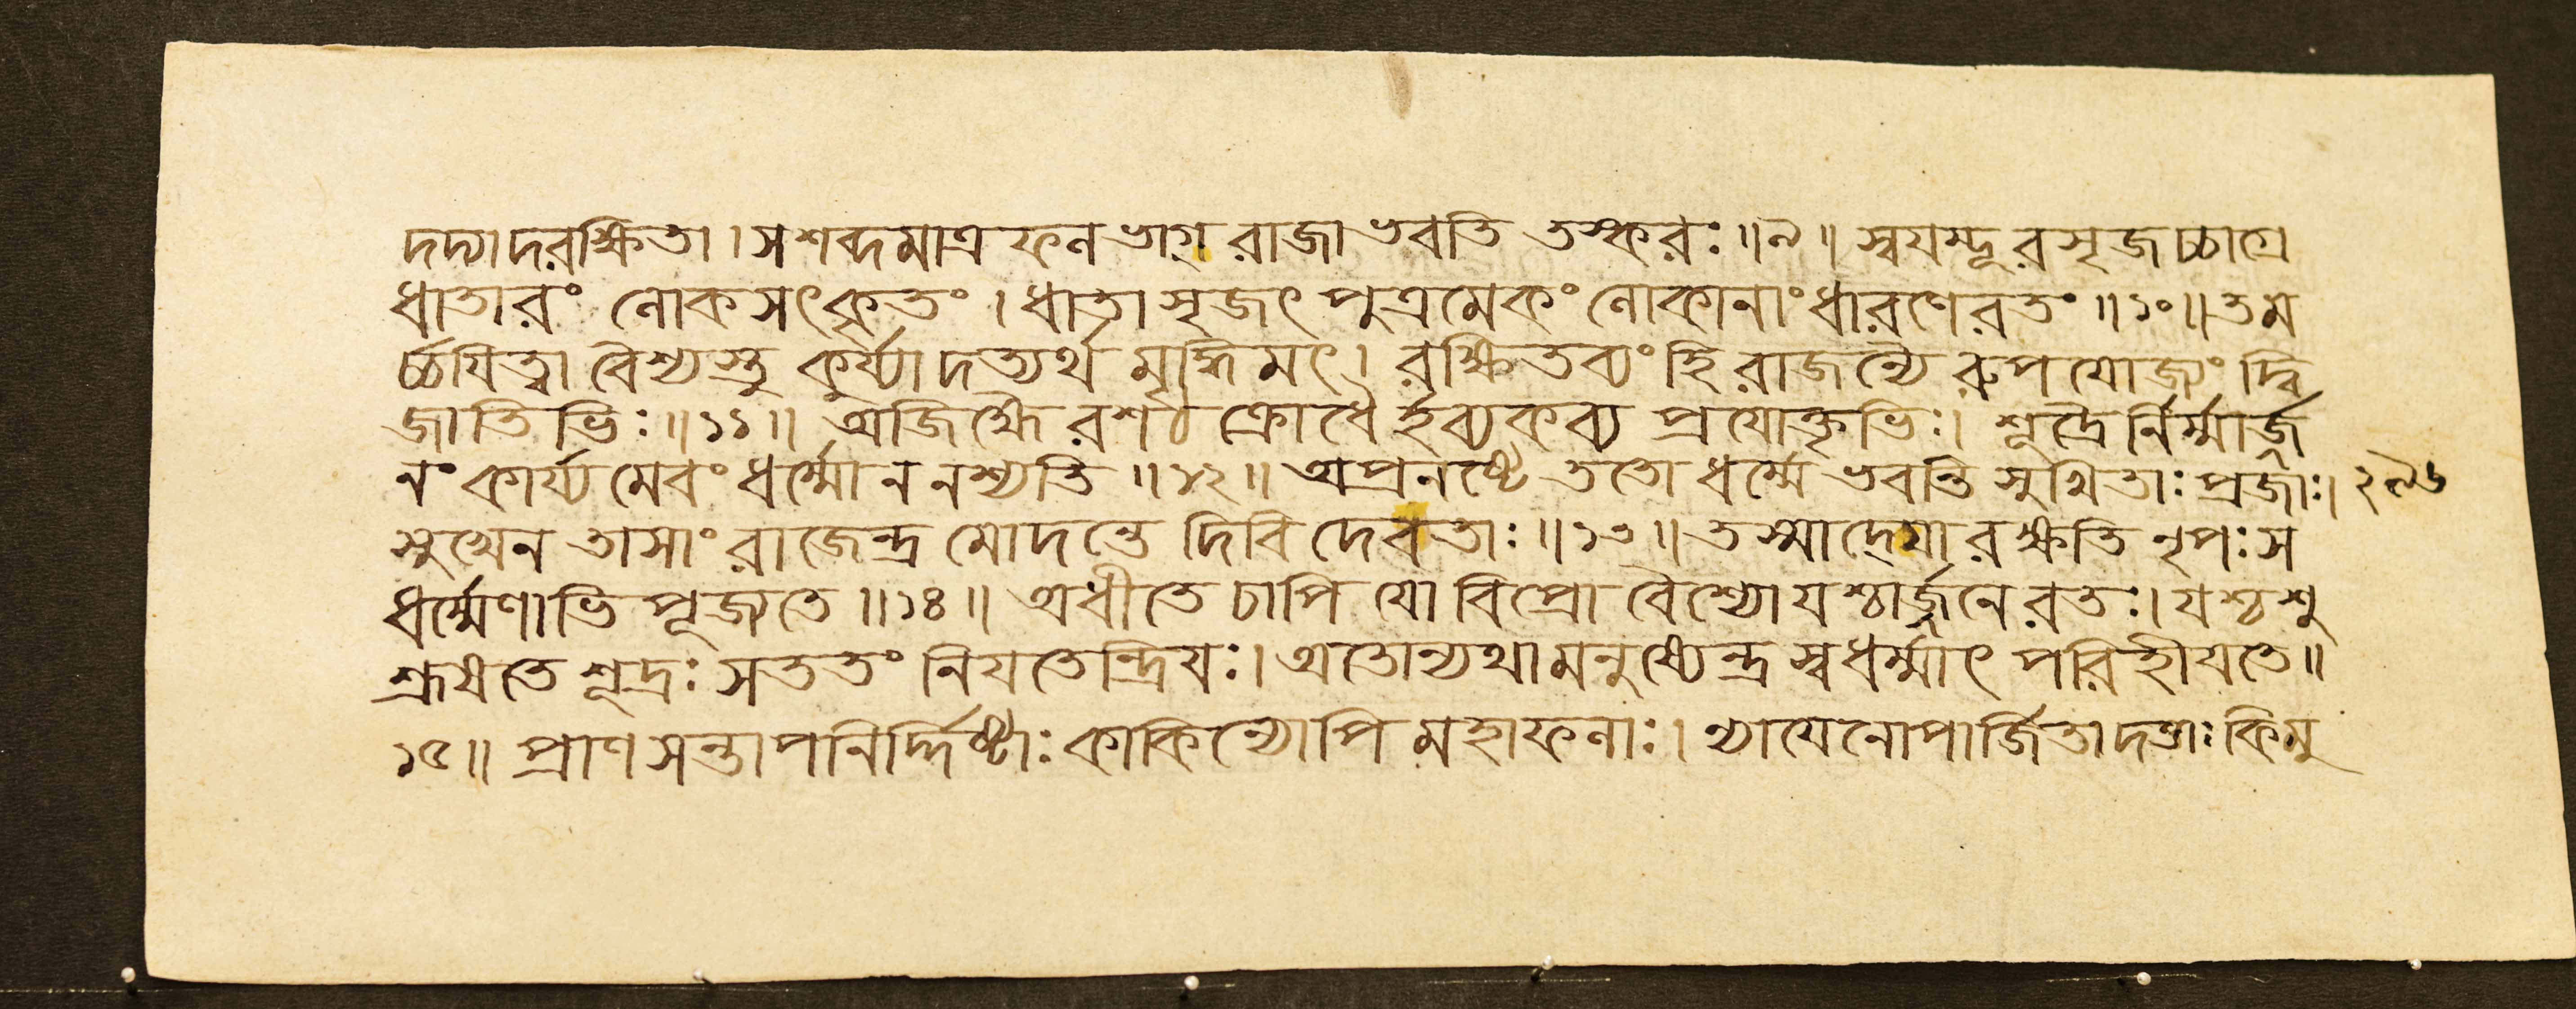 দদ্যাদরক্ষিতা। স শব্দমাত্র ফলভাগ্ রাজা ভবতি তস্করঃ॥৯॥ স্বযম্ভূরসৃজচ্চাগ্রে
ধাতারং লোকসৎকৃতং। ধাতাসৃজৎ পুত্রমেকং লোকানাং ধারণে রতং॥১০॥ তম
র্চ্চযিত্বা বৈশ্যস্তু কুর্য্যাদত্যর্থমৃদ্ধিমৎ। রক্ষিতব্যং হি রাজন্যৈরুপযোজ্যং দ্বি
জাতিভিঃ॥১১॥ অজিহ্মৈরশঠক্রোধৈর্হব্যকব্য প্রযোক্তৃভিঃ। শূদ্রৈর্নির্ম্মার্জ্জ
নং কার্য্যমেবং ধর্ম্মো ন নশ্যতি॥১২॥ অপ্রনষ্টে ততো ধর্ম্মে ভবন্তি সুখিতাঃ প্রজাঃ।
সুখেন তাসাং রাজেন্দ্র মোদন্তে দিবি দেবতাঃ॥১৩॥ তস্মাদ্যো রক্ষতি নৃপঃ স
ধর্ম্মেণাভিপূজ্যতে॥১৪॥ অধীতে চাপি যো বিপ্রো বৈশ্যো যশ্চার্জ্জনে রতঃ। যশ্চ শু
শ্রূষতে শূদ্রঃ সততং নিযতেন্দ্রিযঃ। অতোন্যথা মনুষ্যেন্দ্র স্বধর্ম্মাৎ পরিহীযতে॥
১৫॥ প্রাণসন্তাপনির্দ্দিষ্টাঃ কাকিন্যোপি মহাফলাঃ। ন্যাযেনোপার্জিতা দত্তাঃ কিমু